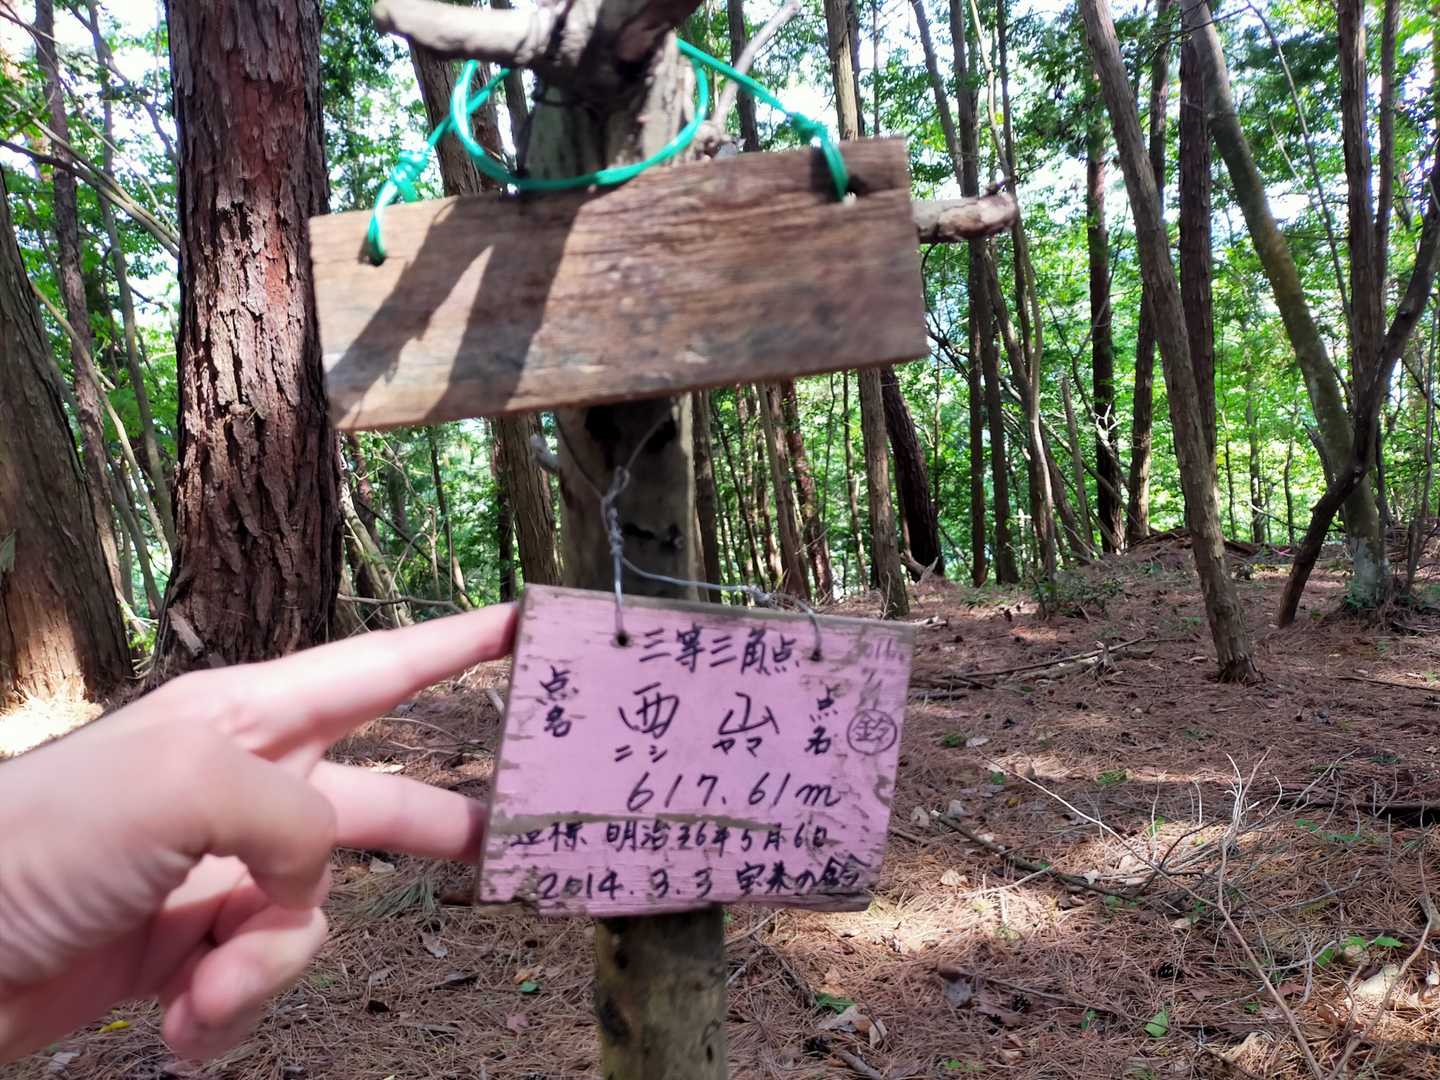 三等三角点
点名 西山 点名 鈴
ニシ ヤマ
617.61m
標 明治36年5月6日
2014.3.3 宝来の鈴